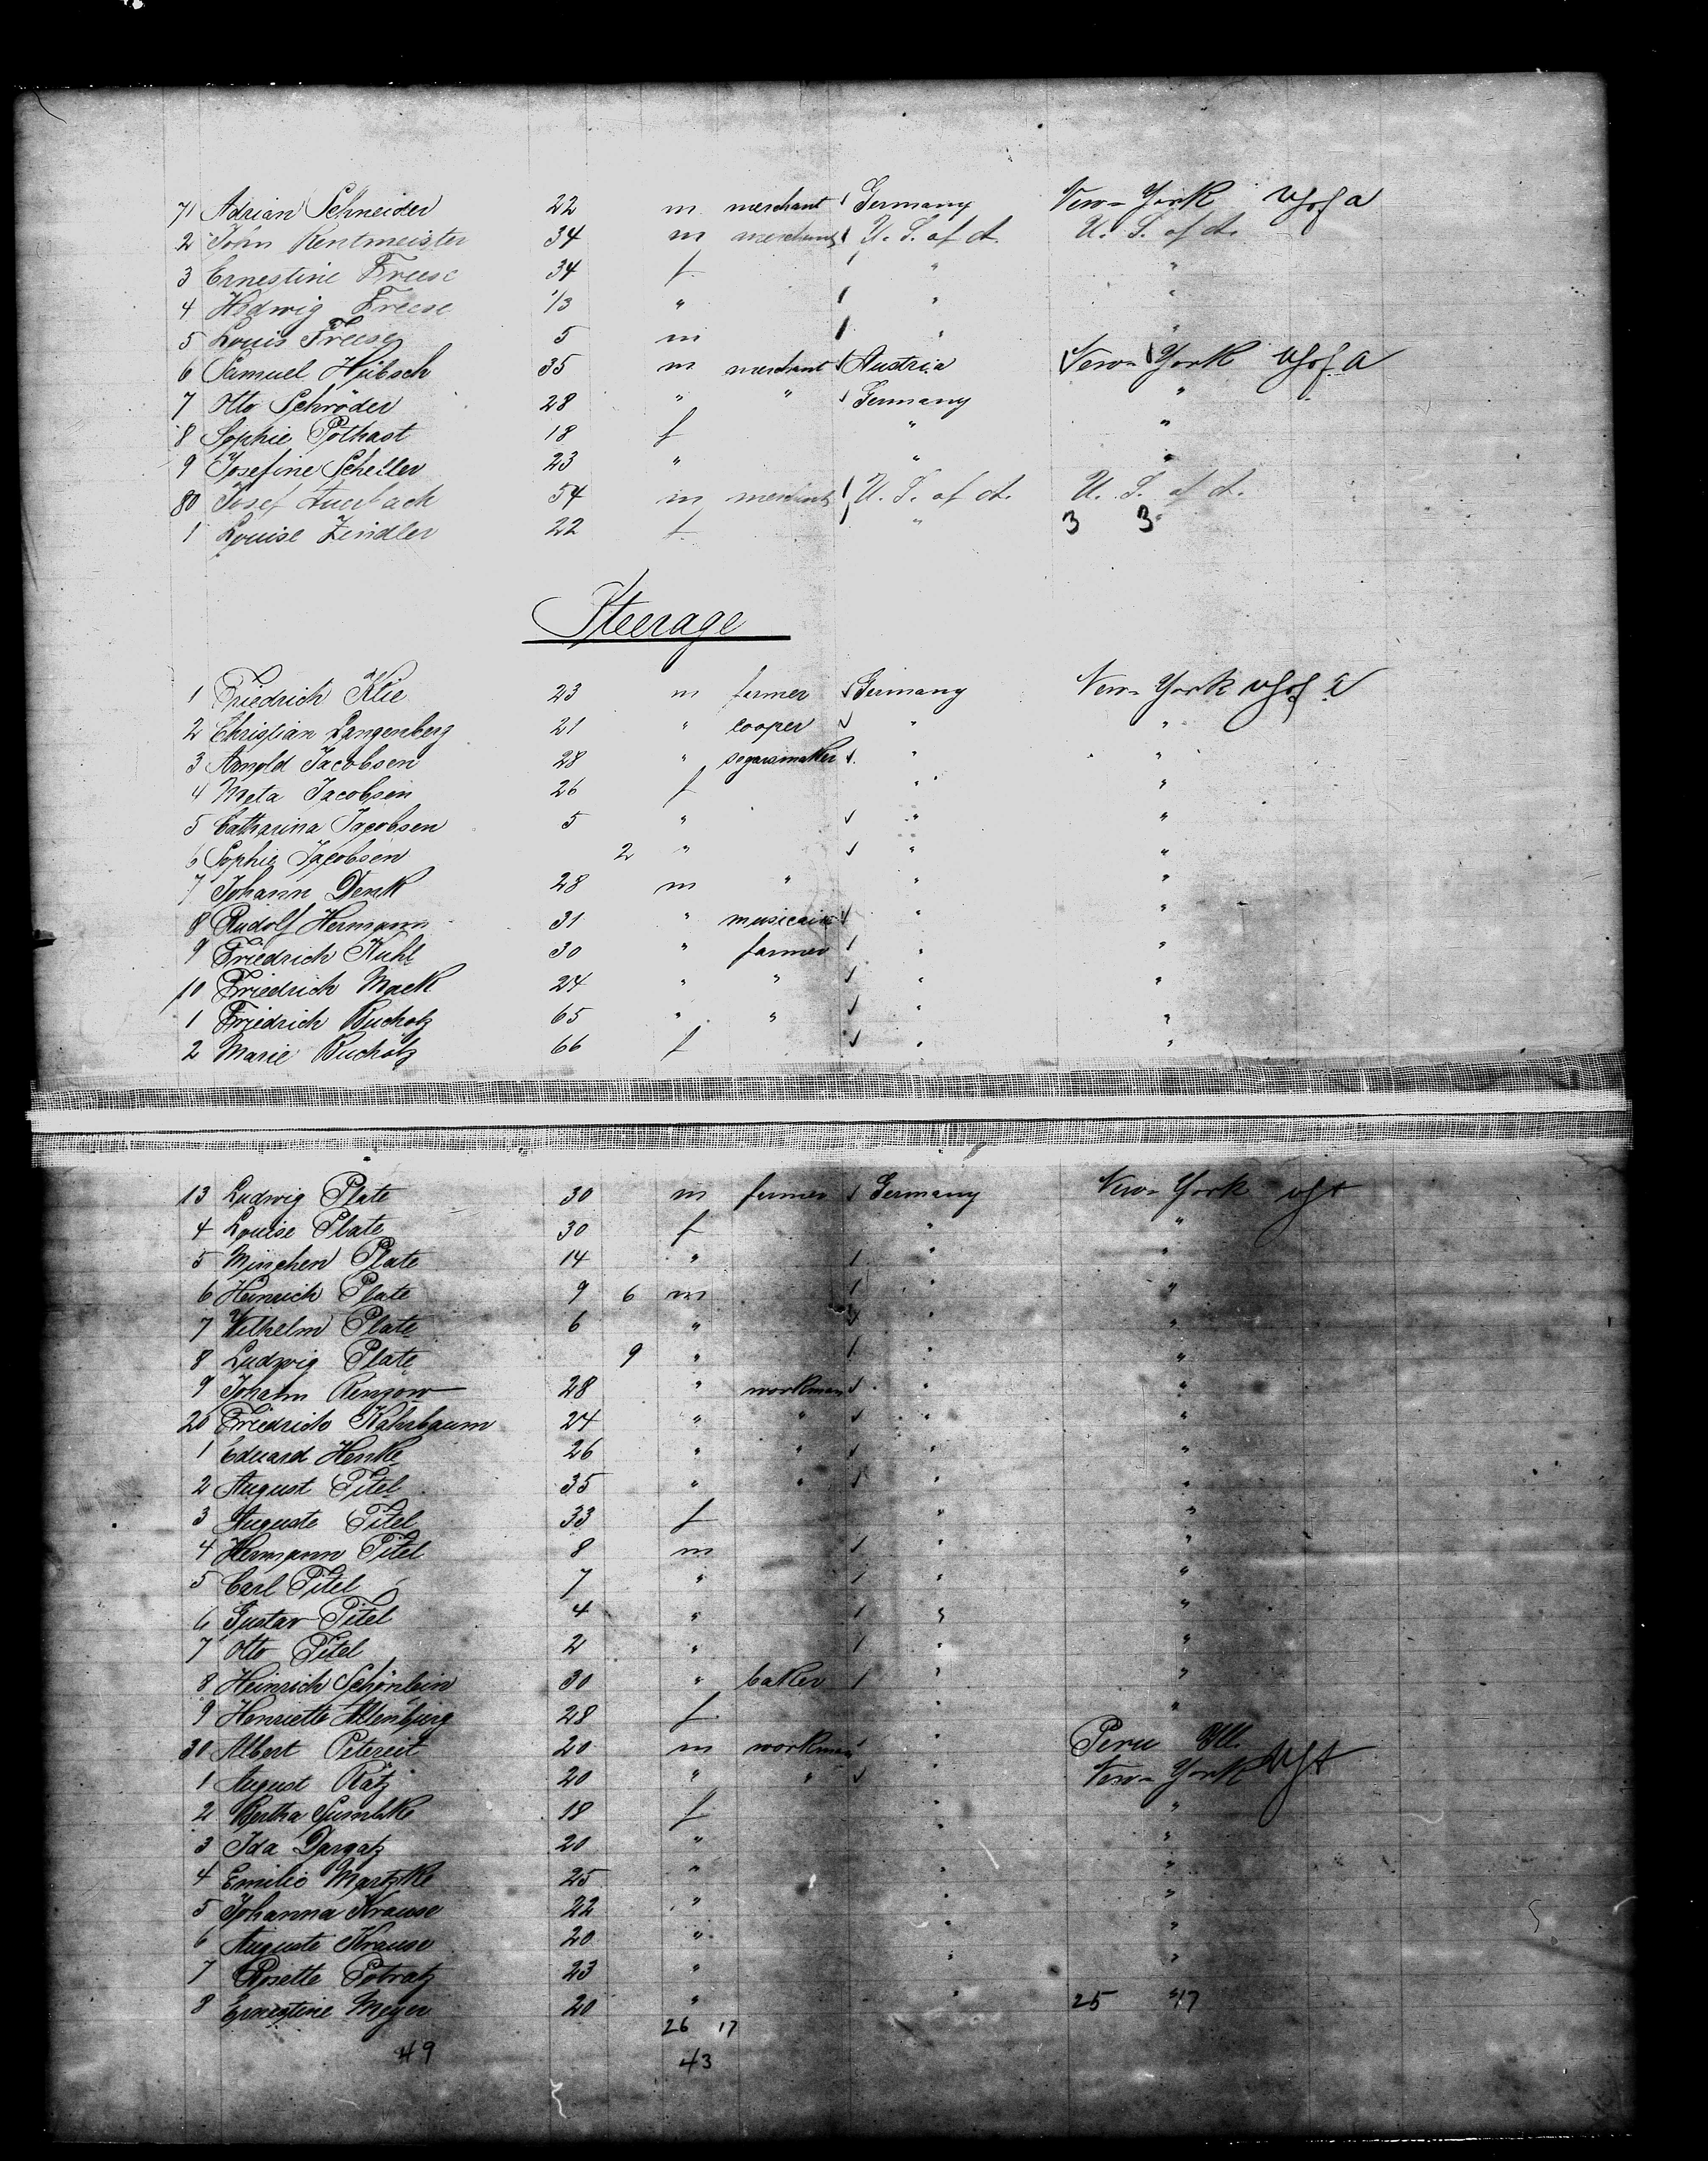 71 Adrian Schneider 22 m merchant Germany New-York USofA
2 John Rentmeister 34 m merchant U. S. of A. U. S. of A.
3 Ernestine Freese 34 f " "
4 Hedwig Freese 13 " " "
5 Louis Freese 5 m " "
6 Samuel Hübsch 35 m merchant Austria New-York USofA
7 Otto Schröder 28 " " Germany "
8 Sophie Pothast 18 f " "
9 Josefine Scheller 23 " " "
80 Josef Auerbach 54 m merchant U. S. of A. U. S. of A.
1 Louise Zindler 22 f " 3 3
Steerage
1 Friedrich Klie 23 m farmer Germany New-York USofA
2 Christian Langenberg 21 " cooper " "
3 Arnold Jacobsen 28 " segarsmaker " "
4 Meta Jacobsen 26 f " "
5 Catharina Jacobsen 5 " " "
6 Sophie Jacobsen 2 " " "
7 Johann Denk 28 m " " "
8 Rudolf Hermann 31 " musician " "
9 Friedrich Kuhl 30 " farmer " "
10 Friedrich Mack 24 " " " "
1 Friedrich Bucholz 65 " " " "
2 Marie Bucholz 66 f " "
13 Ludwig Plate 30 m farmer Germany New-York USA
4 Louise Plate 30 f " "
5 Minchen Plate 14 " " "
6 Heinrich Plate 9 6 m " "
7 Wilhelm Plate 6 " " "
8 Ludwig Plate 9 " "
9 Johann Renzow 28 " workman " "
20 Friedrich Kahrbaum 24 " " " "
1 Eduard Henke 26 " " " "
2 August Titel 35 " " " "
3 Auguste Titel 33 f " "
4 Hermann Titel 8 m " "
5 Carl Titel 7 " " "
6 Gustav Titel 4 " " "
7 Otto Titel 2 " " "
8 Heinrich Schönlein 30 " baker " "
9 Henriette Altenburg 28 f " "
30 Albert Petereit 20 m workman " Peru Ill.
1 August Rätz 20 " " " New-York USA
2 Bertha 18 f " "
3 Ida Dargatz 20 " " "
4 Emilie Martzke 25 " " "
5 Johanna Krause 22 " " "
6 Auguste Krause 20 " " "
7 Rosette Potratz 23 " " "
8 Ernestine Meyer 20 " " 25 "17
26 17
49 43